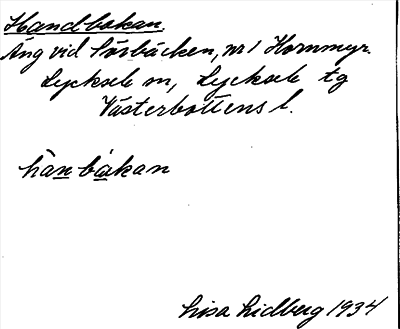 Handbokan.
Äng vid Sörbäcken, nr 1 Hornmyr.
Lycksele sn, Lycksele tg
Västerbottens l.
hàn bákan
Lisa Lidberg 1934